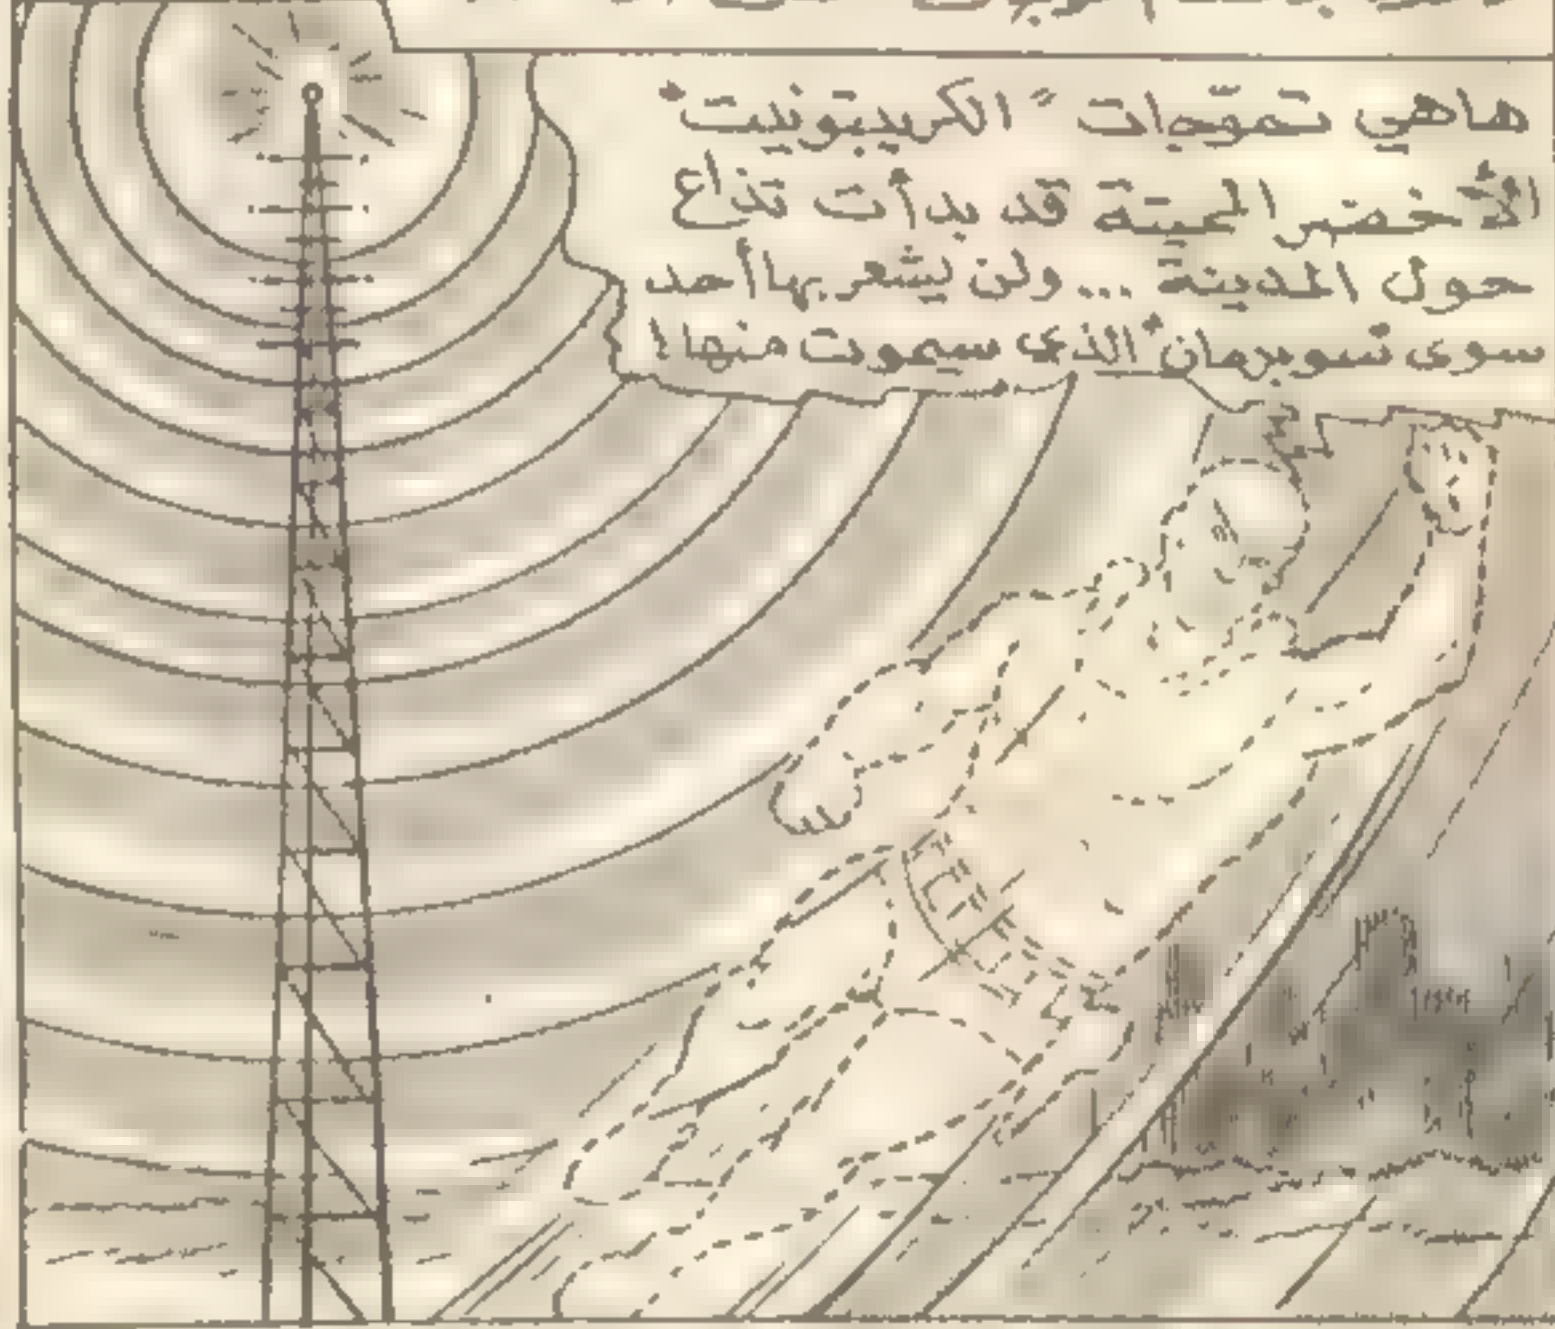 هاهي تموّجات "الكريبتونيت"
الأخضر المميتة قد بدأت تذاع
حول المدينة ... ولن يشعر بها أحد
سوى سوبرمان" الذي سيموت منها!